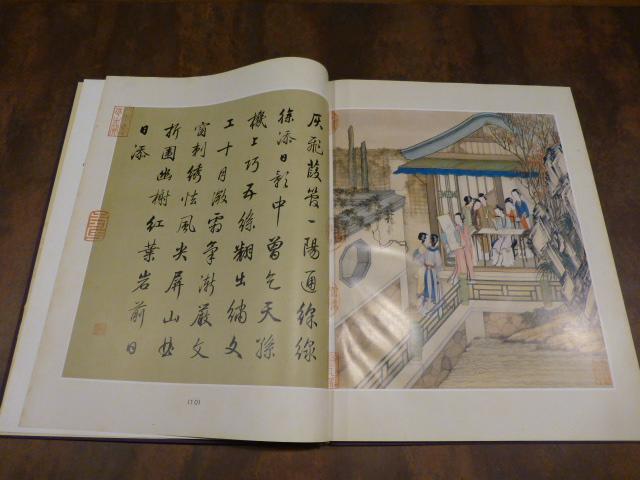 灰飛葭管一陽通綵線
徐添日影中曾乞天孫
機上巧五絲翻出繡文
工十月微霜筆漸嚴文
窗刺繡怯風尖屏山曲
折圍幽榭紅葉岩前日
日添
(10)